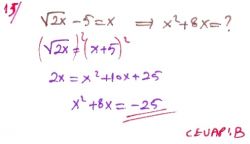 15/ √2x - 5 = x ⟹ x²+8x=?
(√2x)² = (x+5)²
2x = x²+10x+25
x²+8x = -25
CEVAP: B